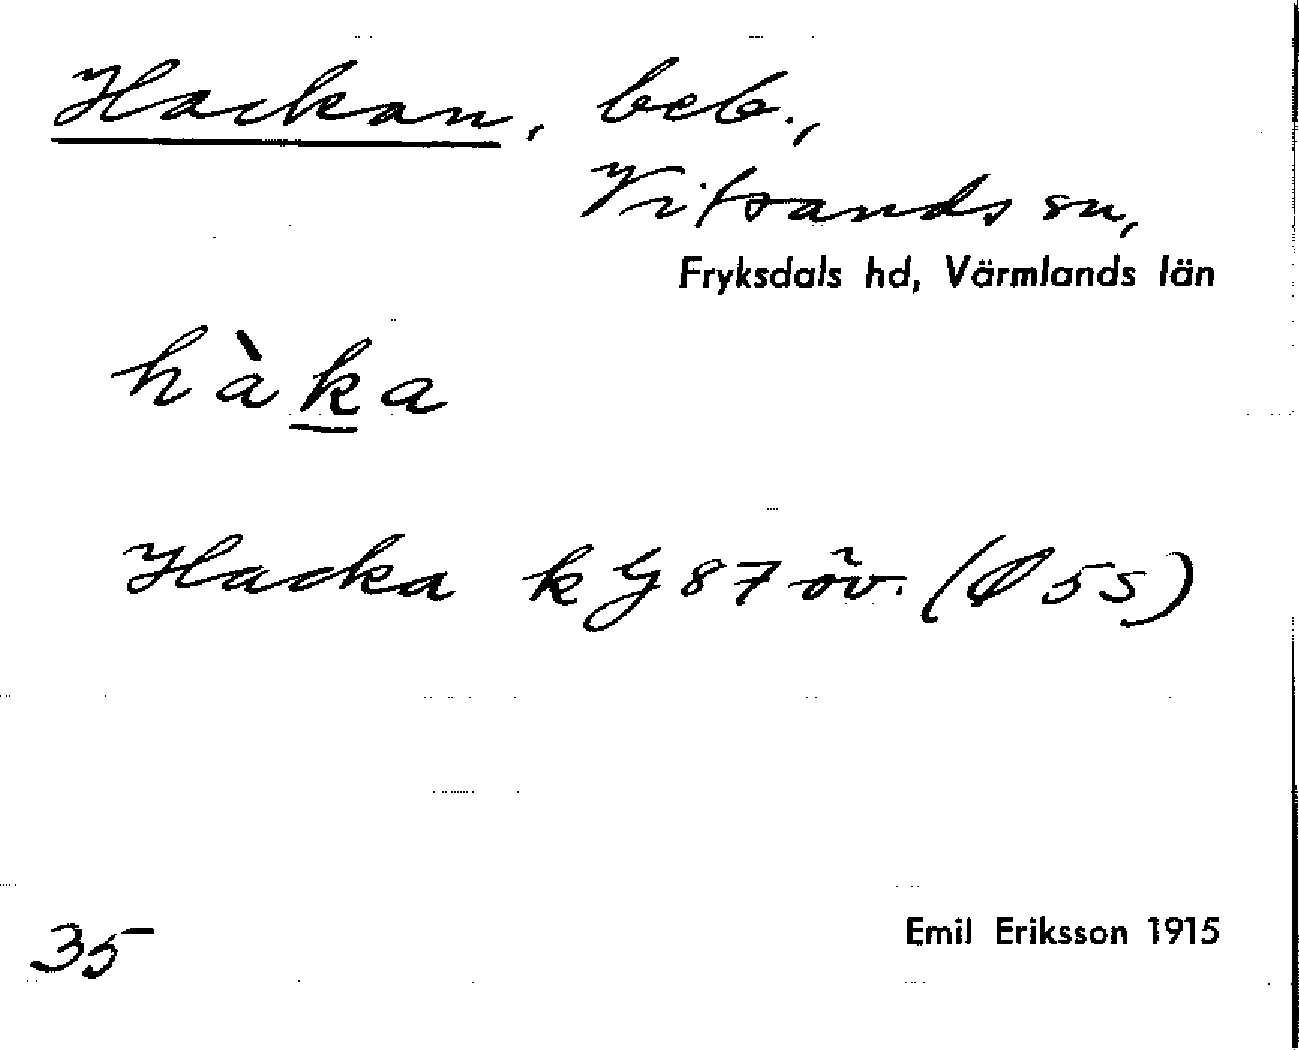 Hackan, beb.,
Vitsands sn,
Fryksdals hd, Värmlands län
hàka
Hacka k G 87 öv. (Ø 55)
35
Emil Eriksson 1915